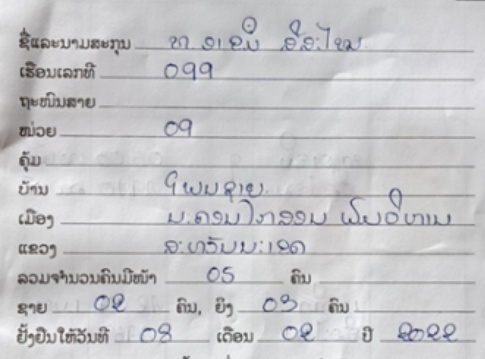 ຊື່ແລະນາມສະກຸນ ທ
ເຮືອນເລກທີ 099
ຖະໜົນສາຍ
ໜ່ວຍ 09
ຄຸ້ມ
ບ້ານ
ເມືອງ ນະຄອນໄກສອນ ພົມວິຫານ
ແຂວງ ສະຫວັນນະເຂດ
ລວມຈຳນວນຄົນມີໜ້າ 05 ຄົນ
ຊາຍ 02 ຄົນ, ຍິງ 03 ຄົນ
ຢັ້ງຢືນໃຫ້ວັນທີ 08 ເດືອນ 02 ປີ 2022